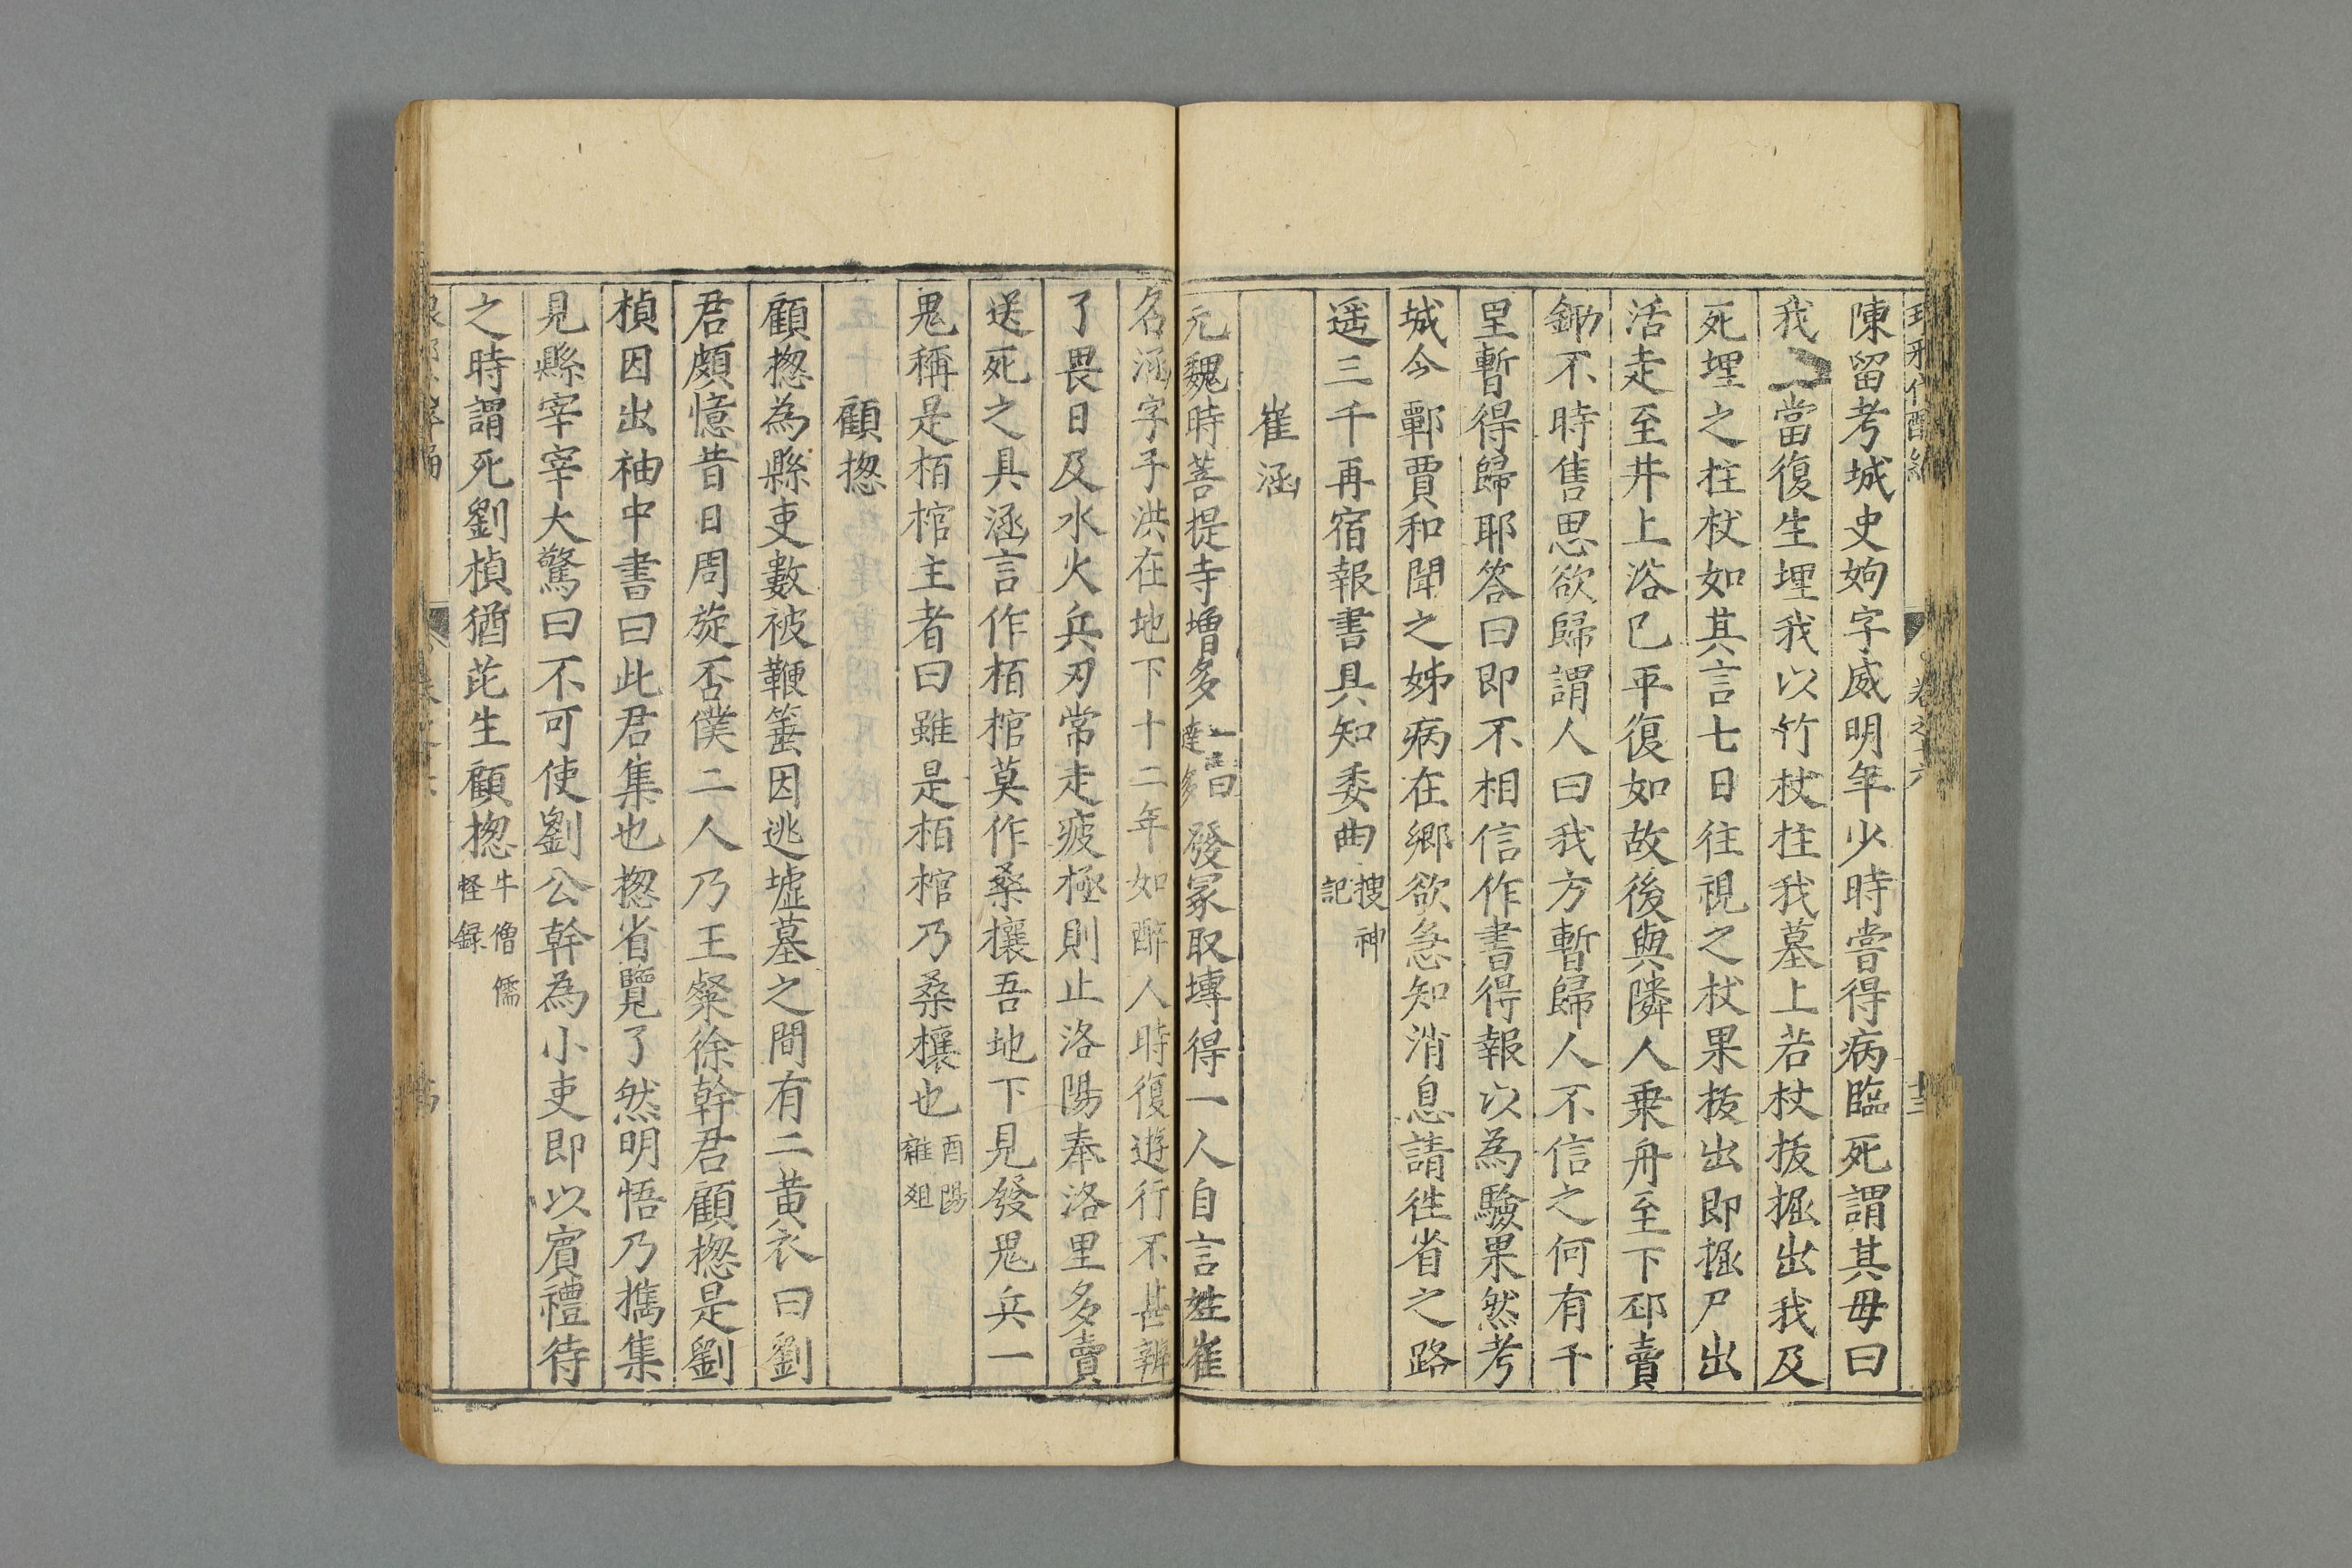 陳留考城史姁字威明年少時嘗得病臨死謂其毋曰
我當復生埋我以竹杖柱我墓上若杖拔掘出我及
死埋之柱杖如其言七日往視之杖果拔出即掘尸出
活走至井上浴已平復如故後與隣人乗舟至下邳賣
鋤不時售思欲歸謂人曰我方暫歸人不信之何有千
里暫得歸耶答曰即不相信作書得報以為驗果然考
城令鄿賈和聞之姊病在鄉欲急知消息請徃省之路
遥三千再宿報書具知委曲 搜神
記
崔涵
元魏時菩提寺增多 一曰
達多 發冢取塼得一人自言姓崔
名涵字子洪在地下十二年如醉人時復遊行不甚辨
了畏日及水火兵刃常走疲極則止洛陽奉洛里多賣
送死之具涵言作栢棺莫作桑欀吾地下見發鬼兵一
鬼稱是栢棺主者曰雖是栢棺乃桑欀也 酉陽
雜俎
顧揔
顧揔為縣吏數被鞭箠因逃墟墓之間有二黄衣曰劉
君頗憶昔日周旋否僕二人乃王粲徐幹君顧揔是劉
楨因出袖中書曰此君集也揔省覽了然明悟乃攜集
見縣宰宰大驚曰不可使劉公幹為小吏即以賓禮待
之時謂死劉楨猶芘生顧揔 牛僧儒
怪録